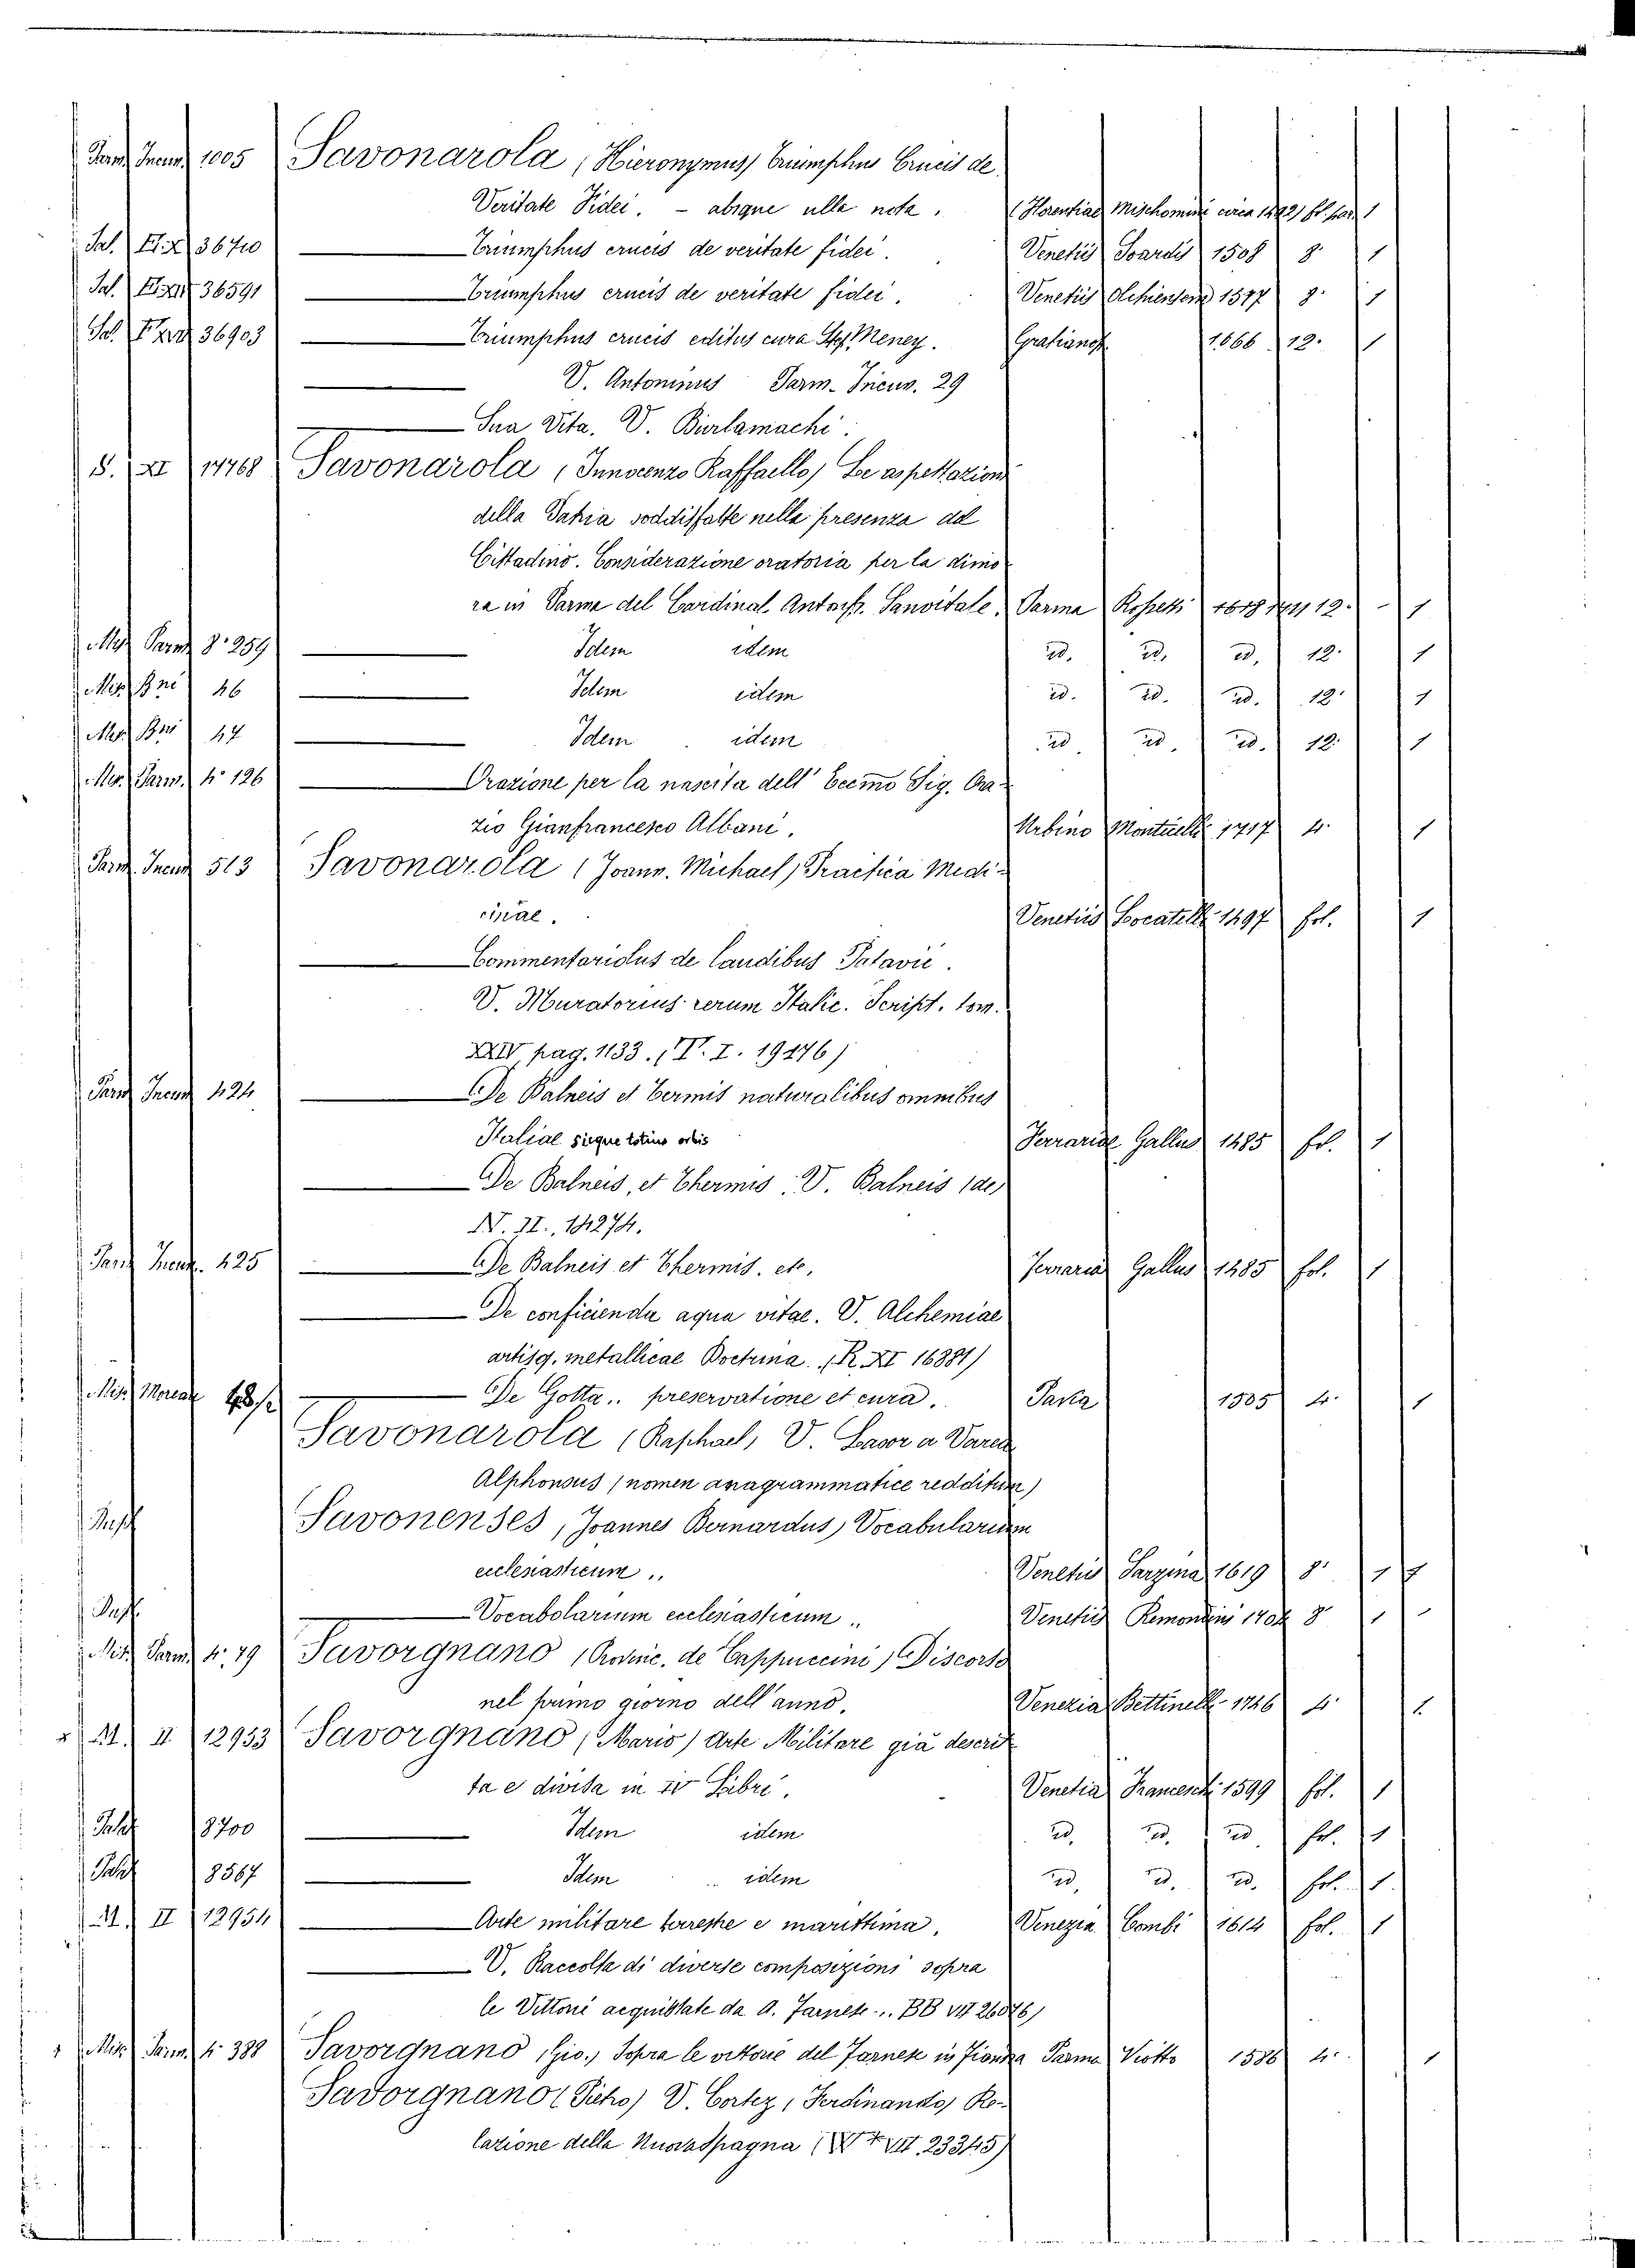 Parm. Incun. 1005 Savonarola (Hieronymus) Triumphus Crucis de
Veritate Fidei. - absque ulla nota. (Florentiae Mischomini circa 1492) fol. par. 1
Sal. 36710 Triumphus crucis de veritate fidei. Venetiis Soardis 1508 8. 1
Sal. 36591 Triumphus crucis de veritate fidei. Venetiis 1517 8. 1
Sal. 36903 Triumphus crucis editus cura Meney. Gratianop. 1666 12. 1
V. Antoninus Parm. Incun. 29
Sua Vita. V. Burlamachi.
S. XI 17768 Savonarola (Innocenzo Raffaello) Le aspettazioni
della Patria soddisfatte nella presenza del
Cittadino. Considerazione oratoria per la dimo-
ra in Parma del Cardinal Sanvitale. Parma Rossetti 12. 1
Mis. Parm. 8.° 259 Idem idem id. id. id. 12. 1
46 Idem idem id. id. id. 12. 1
47 Idem idem id. id. id. 12. 1
Mis. Parm. 4.° 126 Orazione per la nascita dell' Eccmo Sig. Ora-
zio Gianfrancesco Albani. Urbino 1717 4. 1
Parm. Incun. 513 Savonarola (Joann. Michael) Practica Medi-
cinae. Venetiis Locatelli 1497 fol. 1
Commentariolus de laudibus Patavii.
V. Muratorius rerum Italic. Script. tom.
XXIV, pag. 1133. (T. I. 19476)
Parm. Incun. 424 De Balneis et termis naturalibus omnibus
Italiae sicque totius orbis Ferrariae Gallus 1485 fol. 1
De Balneis, et Thermis. V. Balneis (de)
N. II. 14274.
Parm. Incun. 425 De Balneis et Thermis. etc. Ferrariae Gallus 1485 fol. 1
De conficienda aqua vitae. V. Alchemiae
artisq. metallicae Doctrina. (R. XI 16381)
Mis. Moreau 48/2 De Gotta.. preservatione et cura. Pavia 1505 4. 1
Savonarola (Raphael) V. Lasor a Varea
Alphonsus (nomen anagrammatice redditum)
Savonenses (Joannes Bernardus) Vocabularium
ecclesiasticum.. Venetiis Sarzina 1619 8. 1
Vocabolarium ecclesiasticum.. Venetiis Remondini 8. 1
Mis. Parm. 4.° 79 Savorgnano (Provinc. de Cappuccini) Discorso
nel primo giorno dell'anno. Venezia Bettinelli 1746 4. 1
x M. II 12953 Savorgnano (Mario) Arte Militare già descrit-
ta e divisa in IV Libri. Venetia Franceschi 1599 fol. 1
Palat. 8700 Idem idem id. id. id. fol. 1
Palat. 8567 Idem idem id. id. id. fol. 1
M. II 12954 Arte militare terrestre e marittima. Venezia Combi 1614 fol. 1
V. Raccolta di diverse composizioni sopra
le Vittorie acquistate da A. Farnese.. (BB VII 26876)
Mis. Parm. 4.° 388 Savorgnano (Gio.) Sopra le vittorie del Farnese in Fiandra Parma Viotto 1586 4. 1
Savorgnano (Pietro) V. Cortez (Ferdinando) Re-
lazione della Nuova Spagna (VII 23345)